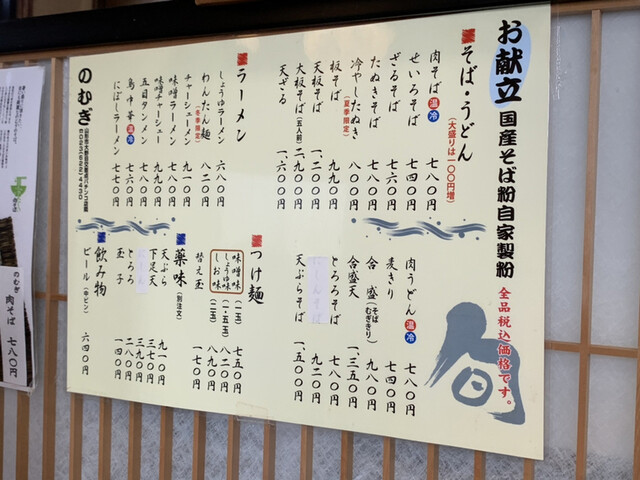 お献立 国産そば粉自家製粉
全品税込価格です。
そば・うどん
(大盛りは一〇〇円増)
肉そば 温 冷 七八〇円
せいろそば 七四〇円
ざるそば 七八〇円
たぬきそば 七八〇円
冷やしたぬき (夏季限定) 八〇〇円
板そば 九九〇円
天板そば 一、二〇〇円
大板そば (五人前) 二、九〇〇円
天ざる 一、六〇〇円
肉うどん 温 冷 七八〇円
麦きり 七四〇円
合盛 (そば むぎきり) 九八〇円
合盛天 一、三五〇円
とろろそば 七八〇円
九二〇円
天ぷらそば 一、五〇〇円
ラーメン
しょうゆラーメン 六八〇円
わんたん麺 (冬季限定) 八二〇円
チャーシューメン 九一〇円
味噌ラーメン 七八〇円
味噌チャーシュー 九九〇円
五目タンメン 七八〇円
鳥中華 温 冷 七六〇円
にぼしラーメン 七七〇円
つけ麺
味噌味
しょうゆ味
しお味
(一玉) 七五〇円
(一・五玉) 八二〇円
(二玉) 八九〇円
替え玉 一七〇円
薬味 (別注文)
天ぷら 九一〇円
下足天 三七〇円
三九〇円
とろろ 二八〇円
玉子 一四〇円
飲み物
ビール (中ビン) 六四〇円
のむぎ
のむぎ
肉そば
七八〇円